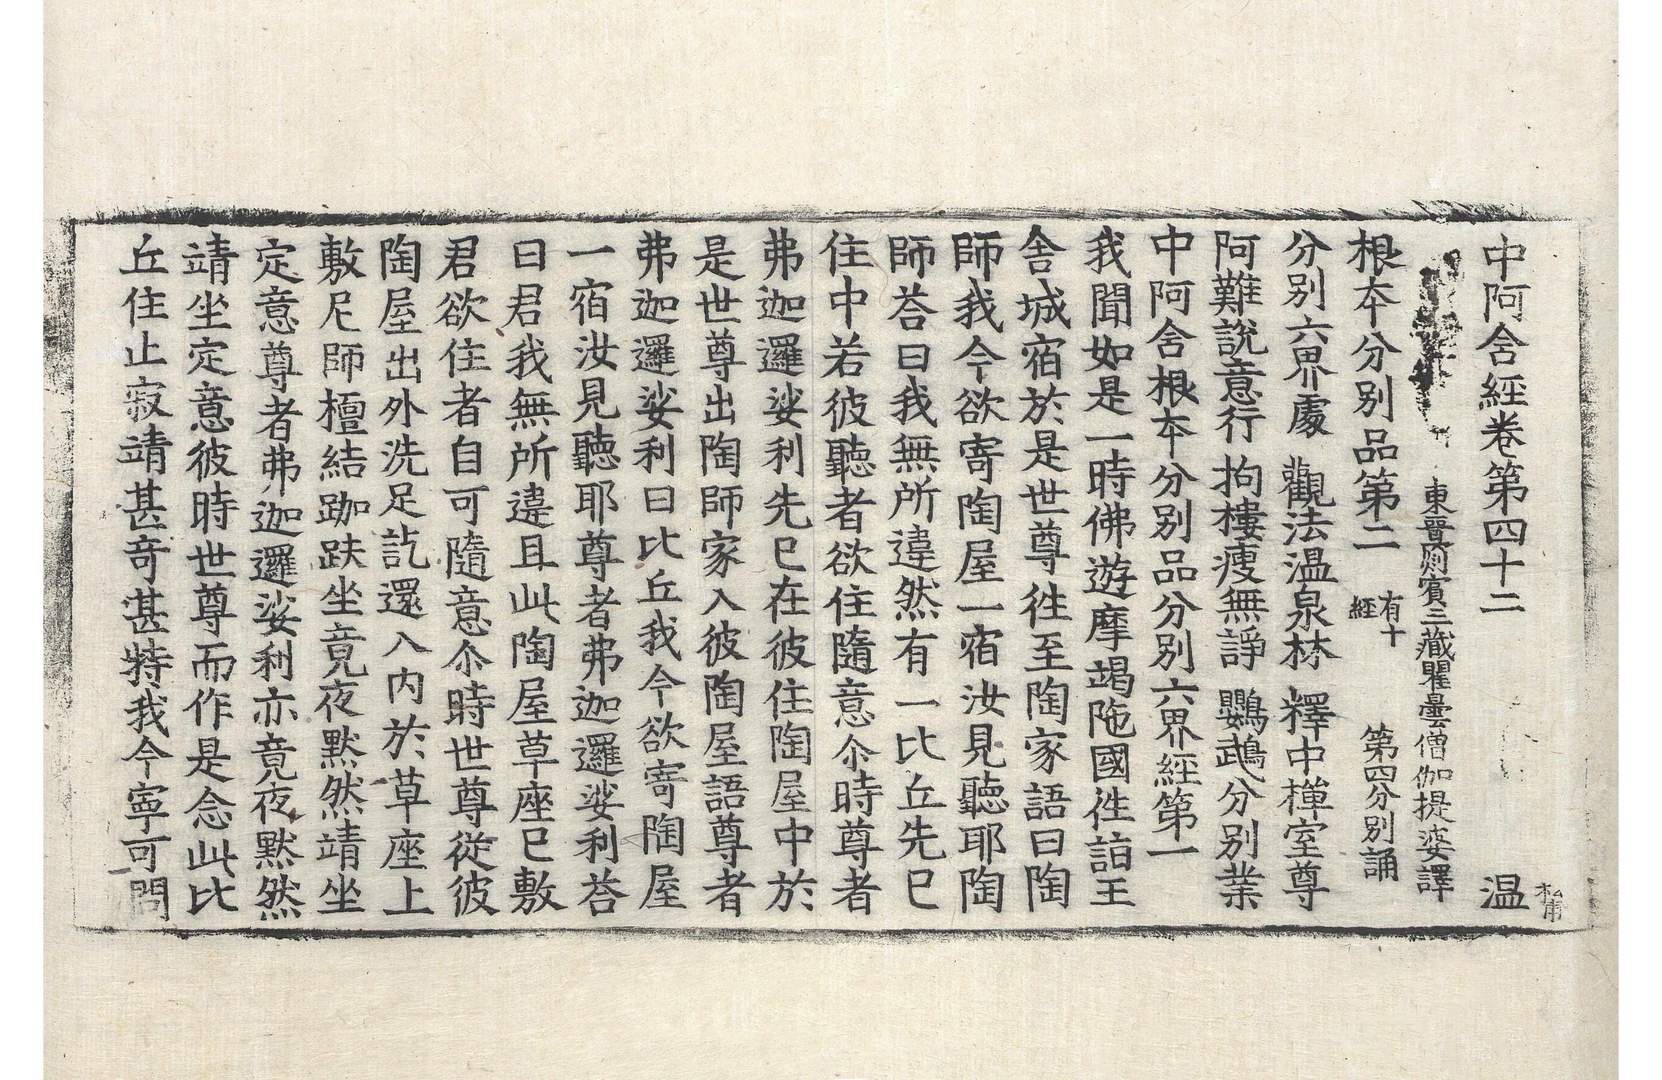 中阿含經卷第四十二 温
東晉罽賓三藏瞿曇僧伽提婆譯
根本分別品第二 有十經 第四分別誦
分別六界處 觀法温泉林 釋中禪室尊
阿難說意行 拘樓瘦無諍 鸚鵡分別業
中阿含根本分別品分別六界經第一
我聞如是一時佛遊摩竭陁國徃詣王
舍城宿於是世尊徃至陶家語曰陶
師我今欲寄陶屋一宿汝見聽耶陶
師荅曰我無所違然有一比丘先已
住中若彼聽者欲住隨意尒時尊者
弗迦邏娑利先已在彼住陶屋中於
是世尊出陶師家入彼陶屋語尊者
弗迦邏娑利曰比丘我今欲寄陶屋
一宿汝見聽耶尊者弗迦邏娑利荅
曰君我無所違且此陶屋草座已敷
君欲住者自可隨意尒時世尊從彼
陶屋出外洗足訖還入內於草座上
敷尼師檀結跏趺坐竟夜默然靖坐
定意尊者弗迦邏娑利亦竟夜默然
靖坐定意彼時世尊而作是念此比
丘住止寂靖甚奇甚特我今寧可問